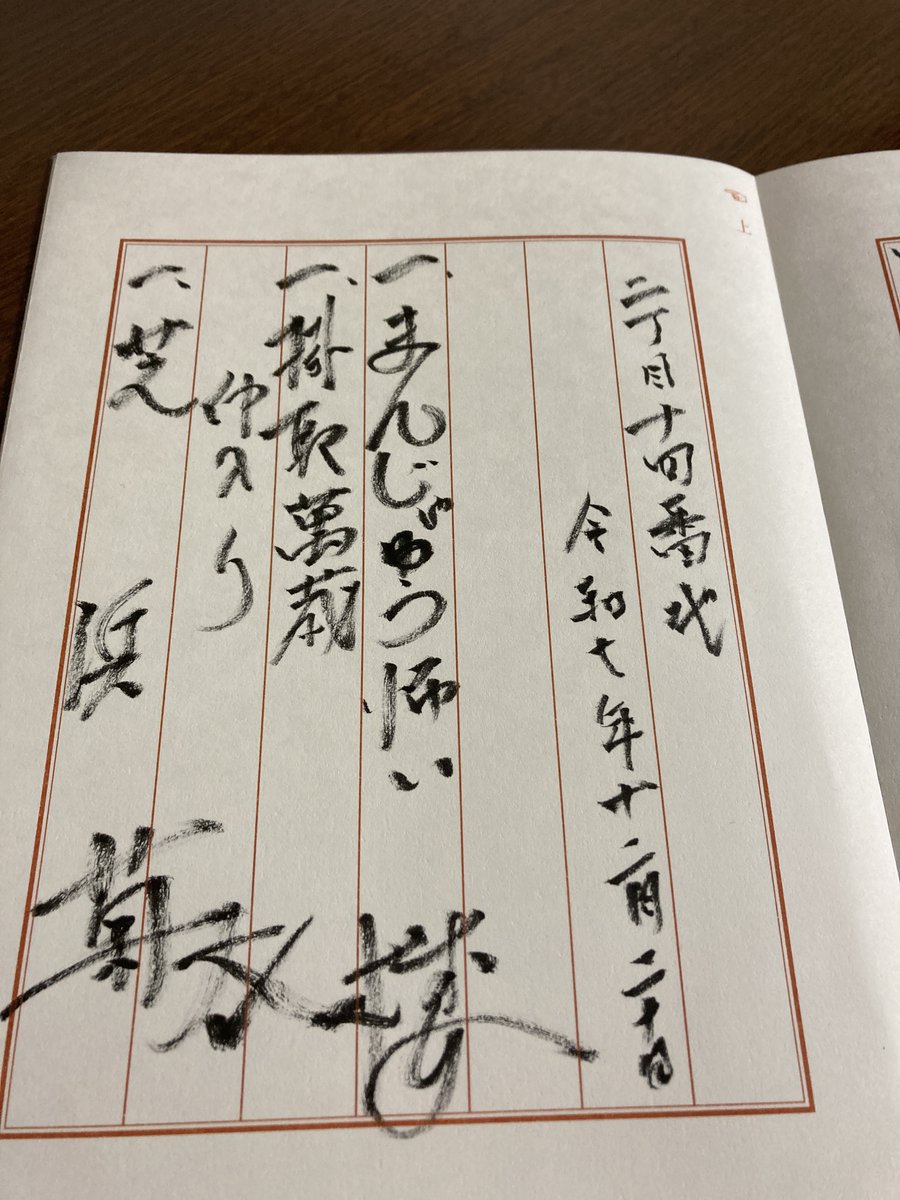 上
二丁目十四番地
令和七年十二月二十日
一、まんじゅう怖い
一、掛取萬歳
仲入り
一、芝浜